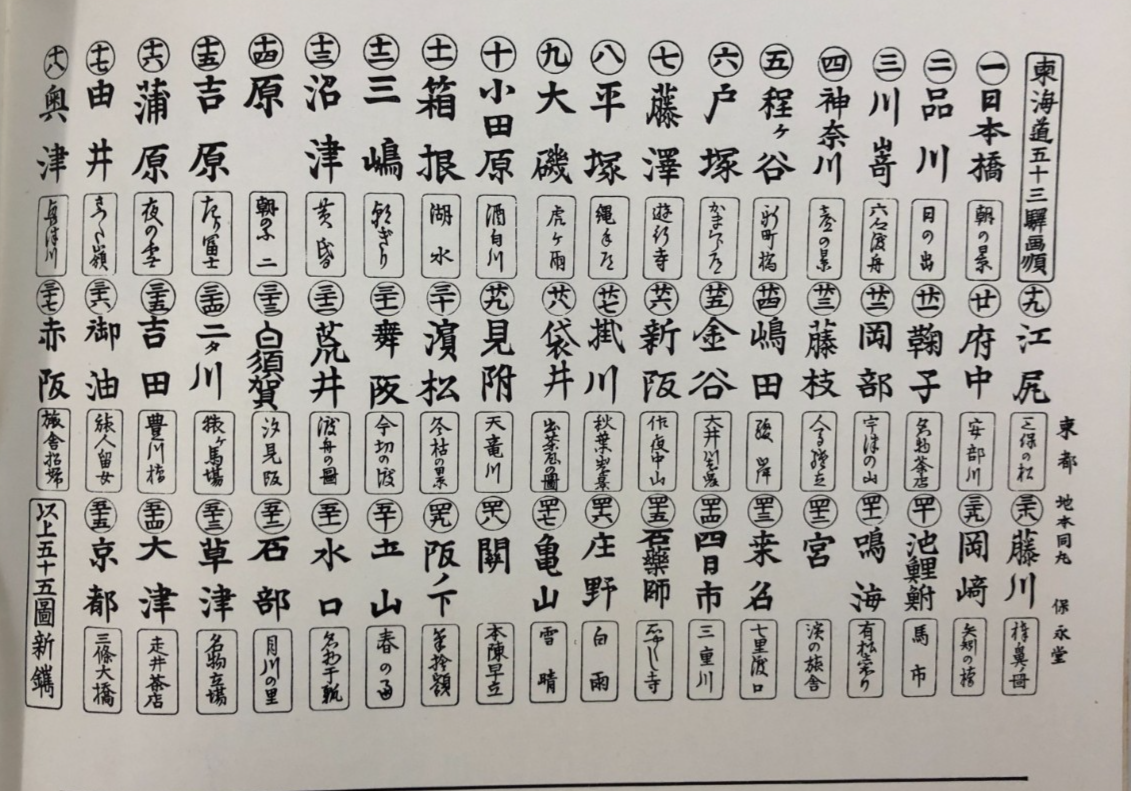 東海道五十三驛画順
一 日本橋 朝の景
二 品川 日の出
三 川嵜 六郷渡舟
四 神奈川 臺の景
五 程ヶ谷 新町橋
六 戸塚 かまくら道
七 藤澤 遊行寺
八 平塚 縄手道
九 大磯 虎ヶ雨
十 小田原 酒匂川
十一 箱根 湖水
十二 三嶋 朝ぎり
十三 沼津 黄昏
十四 原 朝の不二
十五 吉原 左り冨士
十六 蒲原 夜の雪
十七 由井 さった嶺
十八 奥津 興津川
十九 江尻 三保の松
廿 府中 安部川
廿一 鞠子 名物茶店
廿二 岡部 宇津の山
廿三 藤枝 人馬継立
廿四 嶋田 駿岸
廿五 金谷 大井川遠岸
廿六 新阪 佐夜中山
廿七 掛川 秋葉遠景
廿八 袋井 出茶屋の圖
廿九 見附 天竜川
三十 濱松 冬枯の景
三十一 舞阪 今切の渡
三十二 荒井 渡舟の圖
三十三 白須賀 汐見阪
三十四 二タ川 猿ヶ馬場
三十五 吉田 豊川橋
三十六 御油 旅人留女
三十七 赤阪 旅舎招婦
東都 地本問丸 保永堂
三十八 藤川 棒鼻の圖
三十九 岡﨑 矢矧の橋
四十 池鯉鮒 馬市
四十一 鳴海 有松絞り
四十二 宮 濱の旅舎
四十三 桒名 七里渡口
四十四 四日市 三重川
四十五 石藥師 石やくし寺
四十六 庄野 白雨
四十七 亀山 雪晴
四十八 關 本陳早立
四十九 阪ノ下 筆捨嶺
五十 土山 春の雨
五十一 水口 名物干瓢
五十二 石部 目川の里
五十三 草津 名物立場
五十四 大津 走井茶店
五十五 京都 三條大橋
以上五十五圖新鐫